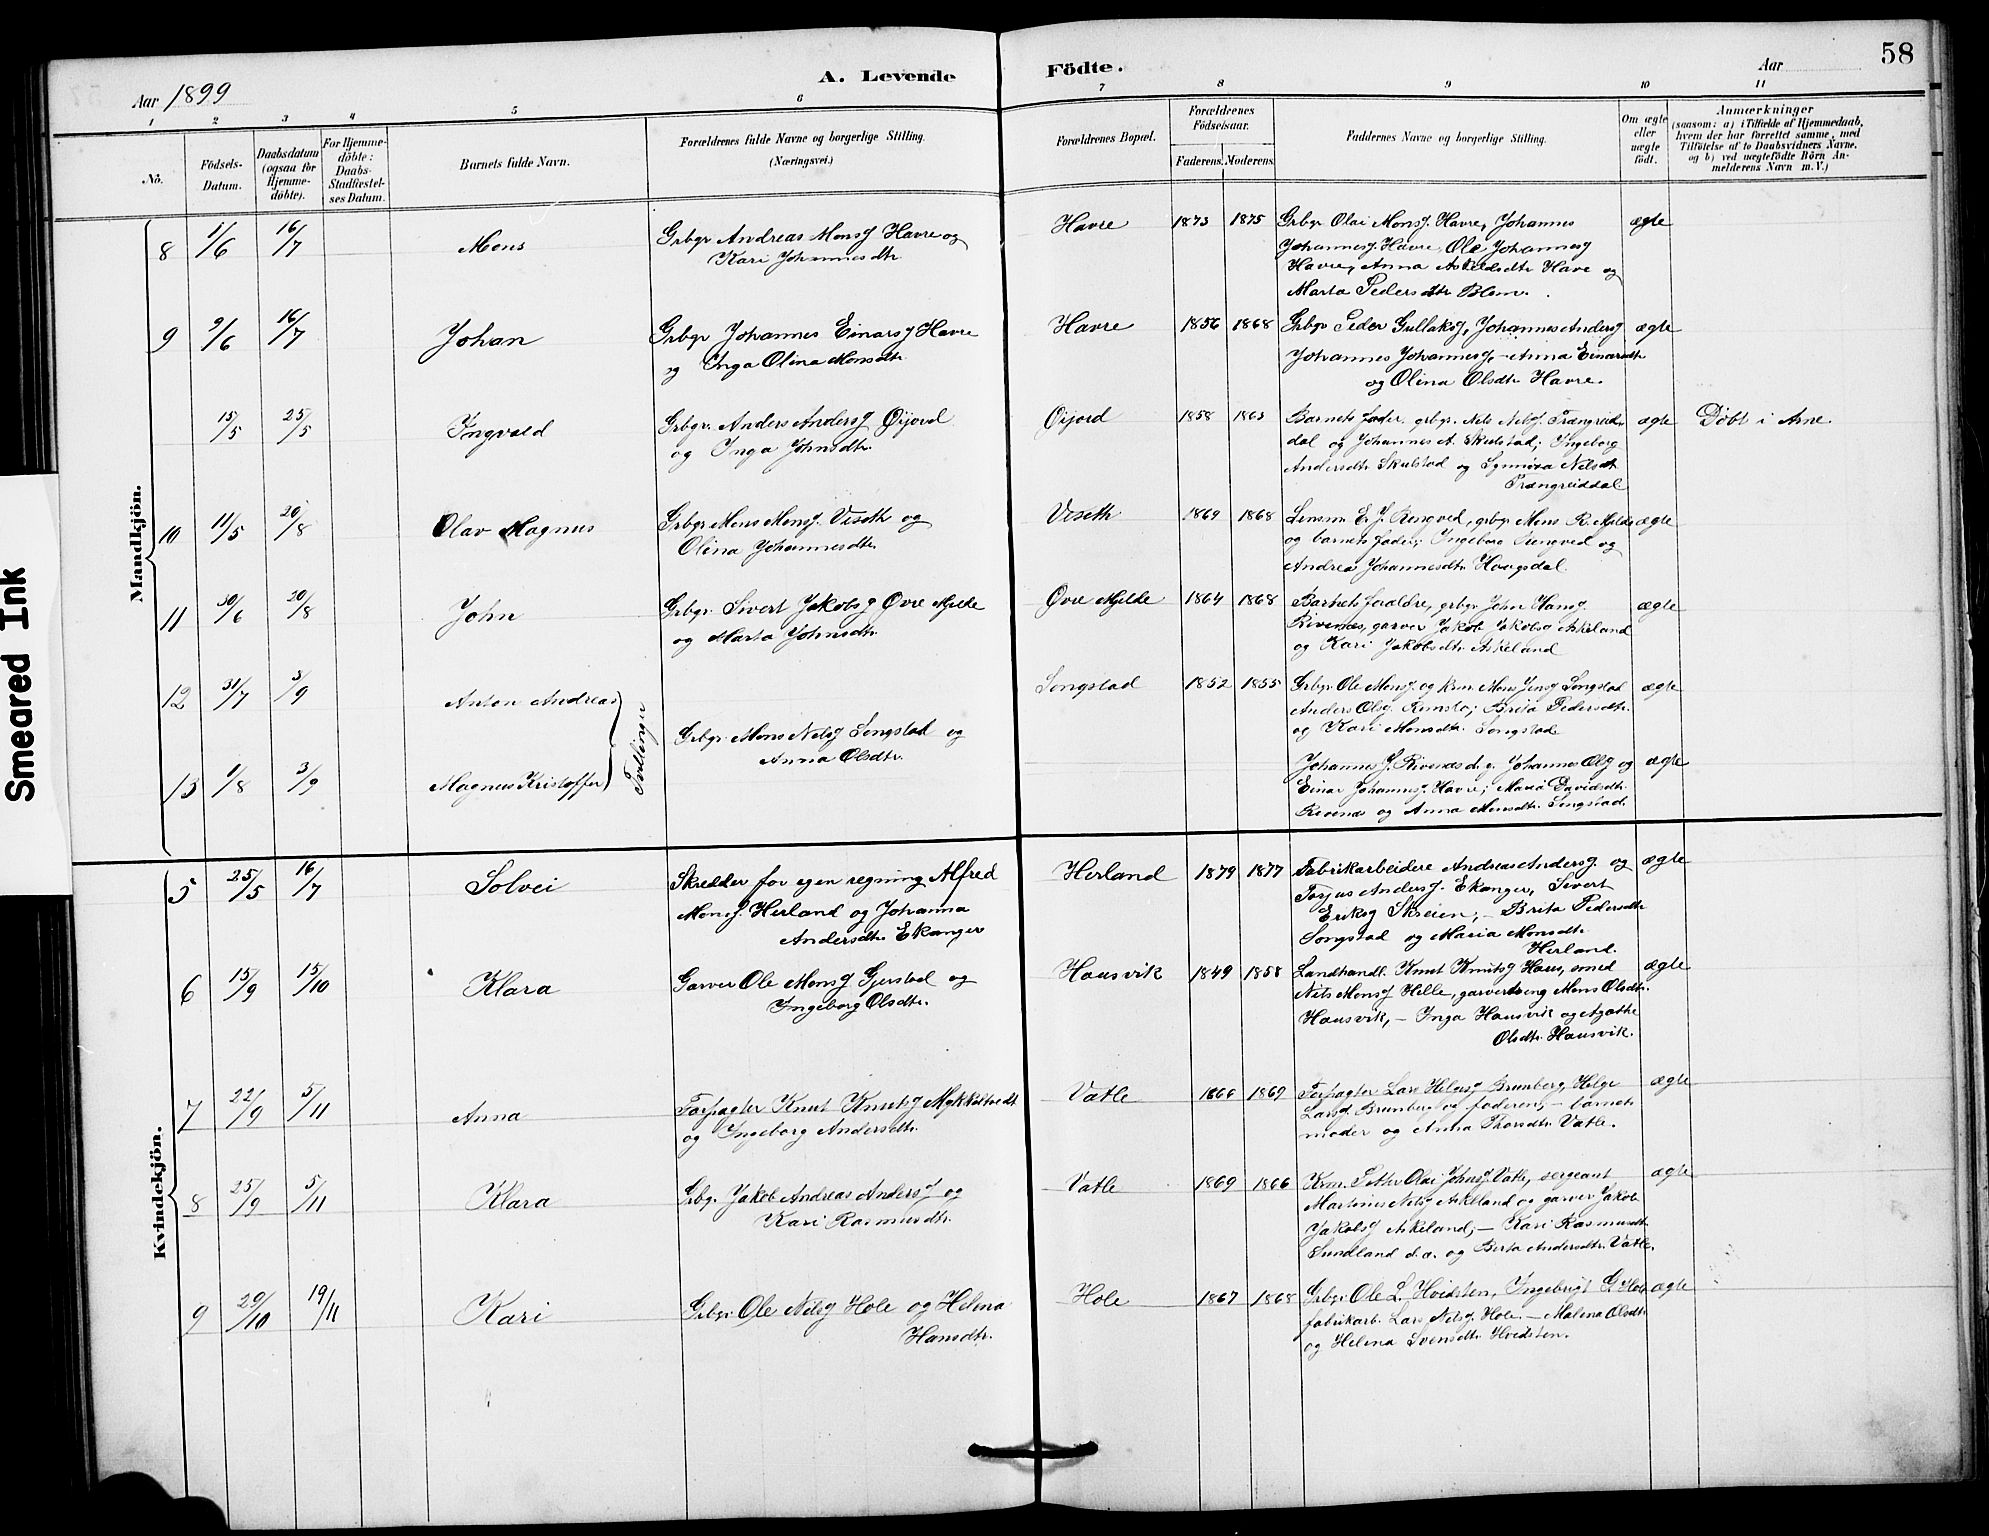 58
A. Levende Födte.
Aar 1899
Aar
1 2 3 4 5 6 7 8 9 10 11
No.
Födsels-Datum.
Daabsdatum (ogsaa for Hjemme-döbte).
For Hjemme-döbte: Daabs-Stadfæstel-ses Datum.
Barnets fulde Navn.
Forældrenes fulde Navne og borgerlige Stilling.
(Næringsvei.)
Forældrenes Bopæl.
Forældrenes Födselsaar.
Faderens. Moderens.
Faddernes Navne og borgerlige Stilling.
Om ægte eller uægte födt.
Anmærkninger
(saasom: a) i Tilfælde af Hjemmedaab,
hvem der har forrettet samme, med
Tilföielse af to Daabsvidners Navne,
og b) ved uægtefödte Börn An-
melderens Navn m. V.)
Smeared Ink
Mandkjön.
8 1/6 16/7 Mons Grbgr Andreas Monsg Havre og Havre 1873 1875 Grbgr Olai Monsg. Havre, Johannes ægte
Kari Johannesdtr. Johannesg. Havre, Ole Johannesg
Havre, Anna Askeldsdtr Havre og
Marta Pedersdtr Blom.
9 9/6 16/7 Johan Grbgr Johannes Einarsg Havre Havre 1856 1868 Grbgr Peder Gullaksg, Johannes Andersg ægte
og Inga Olina Monsdtr. Johannes Johannesg, - Anna Einarsdtr
og Olina Olsdtr Havre.
15/5 25/5 Ingvald Grbgr. Anders Andersg Øijord Øijord 1858 1863 Barnets fader, grbgr. Nels Nelsg. Trængreid- ægte Döbt i Arne
og Inga Johnsdtr. dal og Johannes A. Skulstad; Ingeborg
Andersdtr Skulstad og Synnöva Nelsdt
Trængreiddal
10 11/5 20/8 Olav Magnus Grbgr Mons Monsg. Viseth og Viseth 1869 1868 Lensm E. J. Rongved, grbgr Mons R. Mjelde ægte
Olina Johannesdtr. og barnets fader; Ingeborg Rongved og
Andrea Johannesdtr Haugsdal.
11 30/6 20/8 John Grbgr. Sivert Jakobsg Øvre Mjelde Øvre Mjelde 1864 1868 Barnets foraldre, grbgr John Hansg. ægte
og Marta Johnsdtr. Rivenæs, garver Jakob Jakobsg Askeland
og Kari Jakobsdtr Askeland
12 31/7 3/9 Anton Andreas Songstad 1852 1855 Grbgr Ole Monsg. og Mons Jensg Songstad ægte
Tvillinger Grbgr. Mons Nelsg Songstad og Anders Olsg. Romslo; Brita Pedersdtr.
Anna Olsdtr. og Kari Monsdtr. Songstad
13 1/8 3/9 Magnus Kristoffer Johannes J. Rivenæs d. y. Johannes Olsg og ægte
Einar Johannesg. Havre; Maria Davidsdtr.
Rivenæs og Anna Monsdtr. Songstad.
Kvindekjön.
5 25/5 16/7 Solvei Skredder for egen regning Alfred Herland 1879 1877 Fabrikarbeidere Andreas Andersg. og ægte
Monsg. Herland og Johanna Torjus Andersg. Ekanger, Sivert
Andersdtr Ekanger Eriksg Skreien; - Brita Pedersdtr
Songstad og Maria Monsdtr.
Herland.
6 15/9 15/10 Klara Garver Ole Monsg Gjerstad og Hausvik 1849 1858 Landhandl. Knut Knutsg Haus, smed ægte
Ingeborg Olsdtr. Nils Monsg Helle, garversveng Mons Olsdtr.
Hausvik, - Inga Hausvik og Agathe
Olsdtr. Hausvik.
7 22/9 5/11 Anna Forpagter Knut Knutsg Mykkeltvedt Vatle 1866 1869 Forpagter Lars Helgesg Brunborg, Helge ægte
og Ingeborg Andersdtr. Larsg. Brunborg og faderen; - barnets
moder og Anna Thorsdtr. Vatle.
8 25/9 5/11 Klara Grbgr. Jakob Andreas Andersg og Vatle 1869 1866 Petter Olai Johnsg Vatle, sergeant ægte
Kari Rasmusdtr. Martinus Nelsg Askeland og garver Jakob
Jakobsg Askeland; - Kari Rasmusdtr
Sundland d.æ. og Berta Andersdtr. Vatle.
9 29/10 19/11 Kari Grbgr. Ole Nelsg Hole og Helena Hole 1867 1868 Grbgr Ole L. Hvidsten, Ingebrigt G. Hole ægte
Hansdtr. fabrikarb. Lars Nelsg. Hole. - Malena Olsdtr
og Helena Svensdtr. Hvidsten.